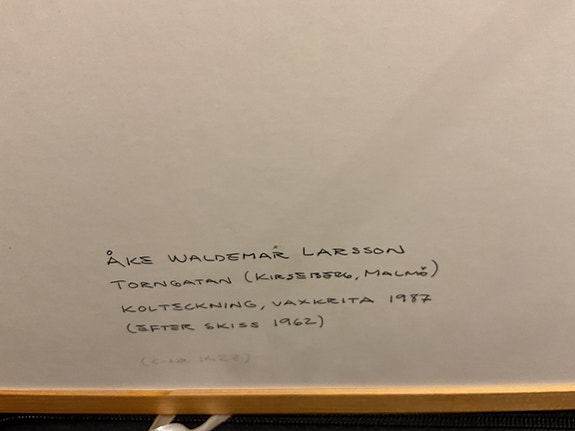 ÅKE WALDEMAR LARSSON
TORNGATAN (KIRSEBERG, MALMÖ)
KOLTECKNING, VAXKRITA 1987
(EFTER SKISS 1962)